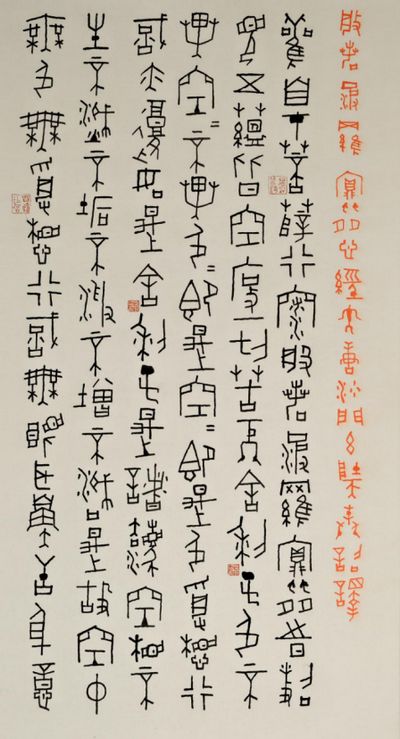 般若波羅蜜多心經大唐沙門玄奘奉詔譯
觀自在菩薩行深般若波羅蜜多時照
見五蘊皆空度一切苦厄舍利子色不
異空=不異色=即是空=即是色受想行
識亦復如是舍利子是諸法空相不
生不滅不垢不淨不增不減是故空中
無色無受想行識無眼耳鼻舌身意